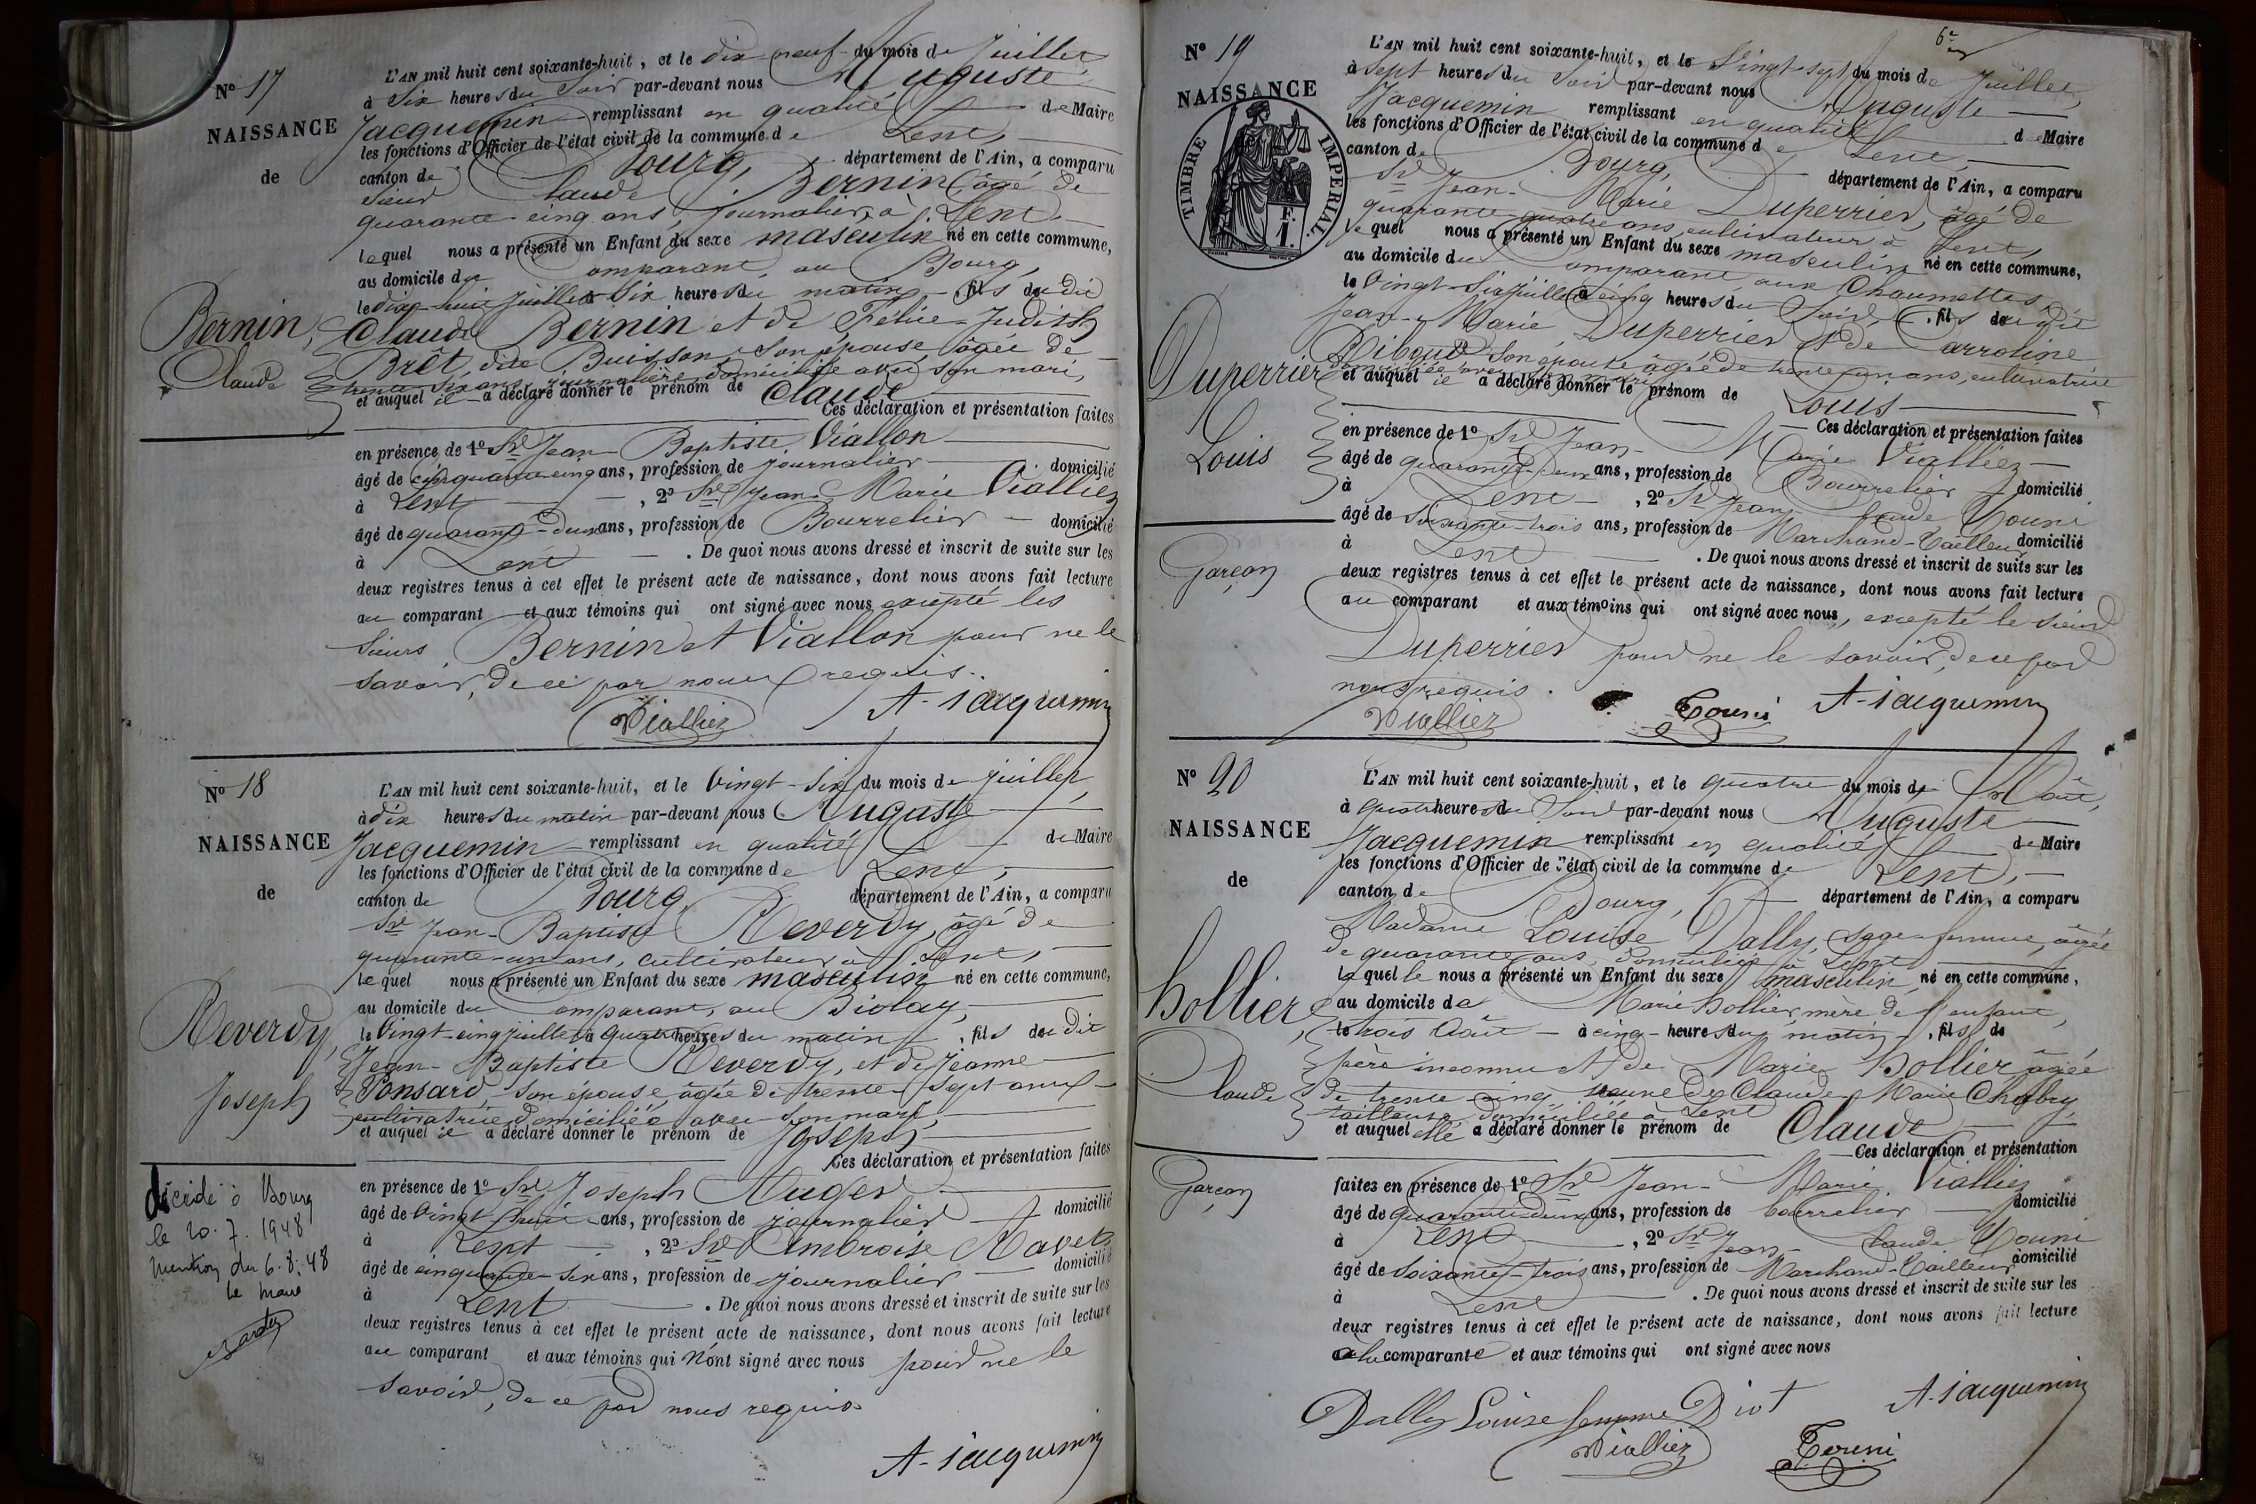 N° 17
NAISSANCE
de
Bernin,
Claude
L'AN mil huit cent soixante-huit, et le dix neuf du mois de Juillet
à Six heures du Soir par-devant nous Auguste
Jacquemin remplissant en qualité de Maire
les fonctions d'Officier de l'état civil de la commune de Lent,
canton de Bourg, département de l'Ain, a comparu
Sieur Claude Bernin, âgé de
quarante-cinq ans, journalier, à Lent
lequel nous a présenté un Enfant du sexe masculin né en cette commune,
au domicile du Comparant, au Bourg,
le dix-huit Juillet à Six heures du matin, fils du dit
Claude Bernin et de Félice-Judith
Brêt, dite Buisson, Son épouse, âgée de
trente-six ans, journalière, domiciliée avec son mari,
et auquel il a déclaré donner le prénom de Claude
Ces déclaration et présentation faites
en présence de 1° Sr Jean-Baptiste Viallon
âgé de cinquante-cinq ans, profession de journalier domicilié
à Lent, 2° Sr Jean-Marie Vialliez
âgé de quarante-deux ans, profession de Bourrelier domicilié
à Lent. De quoi nous avons dressé et inscrit de suite sur les
deux registres tenus à cet effet le présent acte de naissance, dont nous avons fait lecture
au comparant et aux témoins qui ont signé avec nous excepté les
Sieurs Bernin et Viallon pour ne le
savoir, de ce par nous requis.
Vialliez A. Jacquemin
N° 18
NAISSANCE
de
Reverdy,
Joseph
décédé à Bourg
le 20.7.1948
Mention du 6.8.48
Le Maire
L'AN mil huit cent soixante-huit, et le Vingt-Six du mois de juillet,
à dix heures du matin par-devant nous Auguste
Jacquemin remplissant en qualité de Maire
les fonctions d'Officier de l'état civil de la commune de Lent,
canton de Bourg, département de l'Ain, a comparu
Sr Jean-Baptiste Reverdy, âgé de
quarante-un ans, cultivateur à Lent,
lequel nous a présenté un Enfant du sexe masculin né en cette commune,
au domicile du Comparant, au Biolay,
le Vingt-cinq juillet à quatre heures du matin, fils du dit
Jean-Baptiste Reverdy, et de Jeanne
Ponsard, Son épouse, âgée de trente-sept ans
cultivatrice domiciliée avec Son mari,
et auquel il a déclaré donner le prénom de Joseph
Ces déclaration et présentation faites
en présence de 1° Sr Joseph Auger
âgé de Vingt-huit ans, profession de journalier domicilié
à Lent, 2° Sr Ambroise Ravet
âgé de cinquante-six ans, profession de journalier domicilié
à Lent. De quoi nous avons dressé et inscrit de suite sur les
deux registres tenus à cet effet le présent acte de naissance, dont nous avons fait lecture
au comparant et aux témoins qui n'ont signé avec nous pour ne le
savoir, de ce par nous requis
A. Jacquemin
6e
N° 19
NAISSANCE
TIMBRE IMPÉRIAL
F.
1.
Duperrier
Louis
Garçon
L'AN mil huit cent soixante-huit, et le Vingt-sept du mois de Juillet,
à Sept heures du Soir par-devant nous Auguste
Jacquemin remplissant en qualité de Maire
les fonctions d'Officier de l'état civil de la commune de Lent,
canton de Bourg, département de l'Ain, a comparu
Sr Jean-Marie Duperrier, âgé de
quarante-quatre ans, cultivateur à Lent,
lequel nous a présenté un Enfant du sexe masculin né en cette commune,
au domicile du Comparant, aux Chaumettes,
le Vingt-Six juillet à cinq heures du Soir, fils du dit
Jean-Marie Duperrier et de Carroline
Riboud Son épouse âgée de trente-un ans, cultivatrice
domiciliée avec son mari
et auquel il a déclaré donner le prénom de Louis
Ces déclaration et présentation faites
en présence de 1° Sr Jean-Marie Vialliez
âgé de quarante-deux ans, profession de Bourrelier domicilié
à Lent, 2° Sr Jean-Claude Touni
âgé de soixante-trois ans, profession de Marchand-Tailleur domicilié
à Lent. De quoi nous avons dressé et inscrit de suite sur les
deux registres tenus à cet effet le présent acte de naissance, dont nous avons fait lecture
au comparant et aux témoins qui ont signé avec nous, excepté le Sieur
Duperrier pour ne le savoir, de ce par
nous requis.
Vialliez Touni A. Jacquemin
N° 20
NAISSANCE
de
hollier,
Claude
Garçon
L'AN mil huit cent soixante-huit, et le quatre du mois de Août,
à quatre heures du Soir par-devant nous Auguste
Jacquemin remplissant en qualité de Maire
les fonctions d'Officier de l'état civil de la commune de Lent,
canton de Bourg, département de l'Ain, a comparu
Madame Louise Dally, Sage-femme, âgée
de quarante ans, domiciliée à Lent
laquelle nous a présenté un Enfant du sexe masculin, né en cette commune,
au domicile de Marie hollier, mère de l'enfant,
le trois Août à cinq heures du matin, fils de
père inconnu et de Marie hollier âgée
de trente-cinq, veuve de Claude-Marie Chabry,
tailleuse domiciliée à Lent
et auquel elle a déclaré donner le prénom de Claude
Ces déclaration et présentation
faites en présence de 1° Sr Jean-Marie Vialliez
âgé de quarante-deux ans, profession de bourrelier domicilié
à Lent, 2° Sr Jean-Claude Touni
âgé de Soixante-trois ans, profession de Marchand-Tailleur domicilié
à Lent. De quoi nous avons dressé et inscrit de suite sur les
deux registres tenus à cet effet le présent acte de naissance, dont nous avons fait lecture
à la comparante et aux témoins qui ont signé avec nous
Dally Louise femme Diot A. Jacquemin
Vialliez Touni